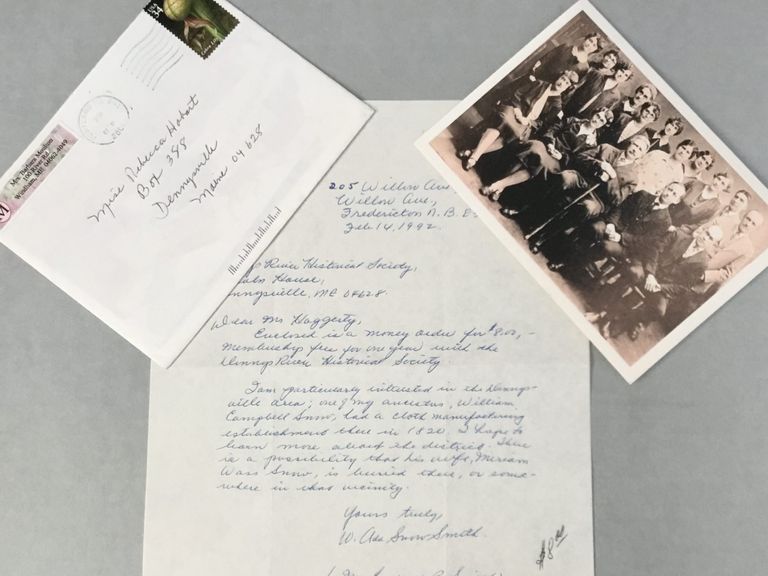 USA
34
Mrs. Barbara Madison
100 River Rd.
Windham, ME 04062-4049
M
Miss Rebecca Hobart
Box 348
Dennysville
Maine 04628
205 Willow Ave.
Willow Ave.,
Fredericton N.B.
Feb. 14, 1992.
River Historical Society,
House,
ME 04628.
Dear Mr Haggerty,
Enclosed is a money order for $8.00, -
Membership fee for one year with the
Dennys River Historical Society.
I am particularly interested in the Dennys-
ville area; one of my ancestors, William
Campbell Snow, had a cloth manufacturing
establishment there in 1820. I hope to
learn more about the district. There
is a possibility that his wife, Miriam
Wass Snow, is buried there, or some-
where in that vicinity.
Yours truly,
W. Ada Snow Smith.
$8.00